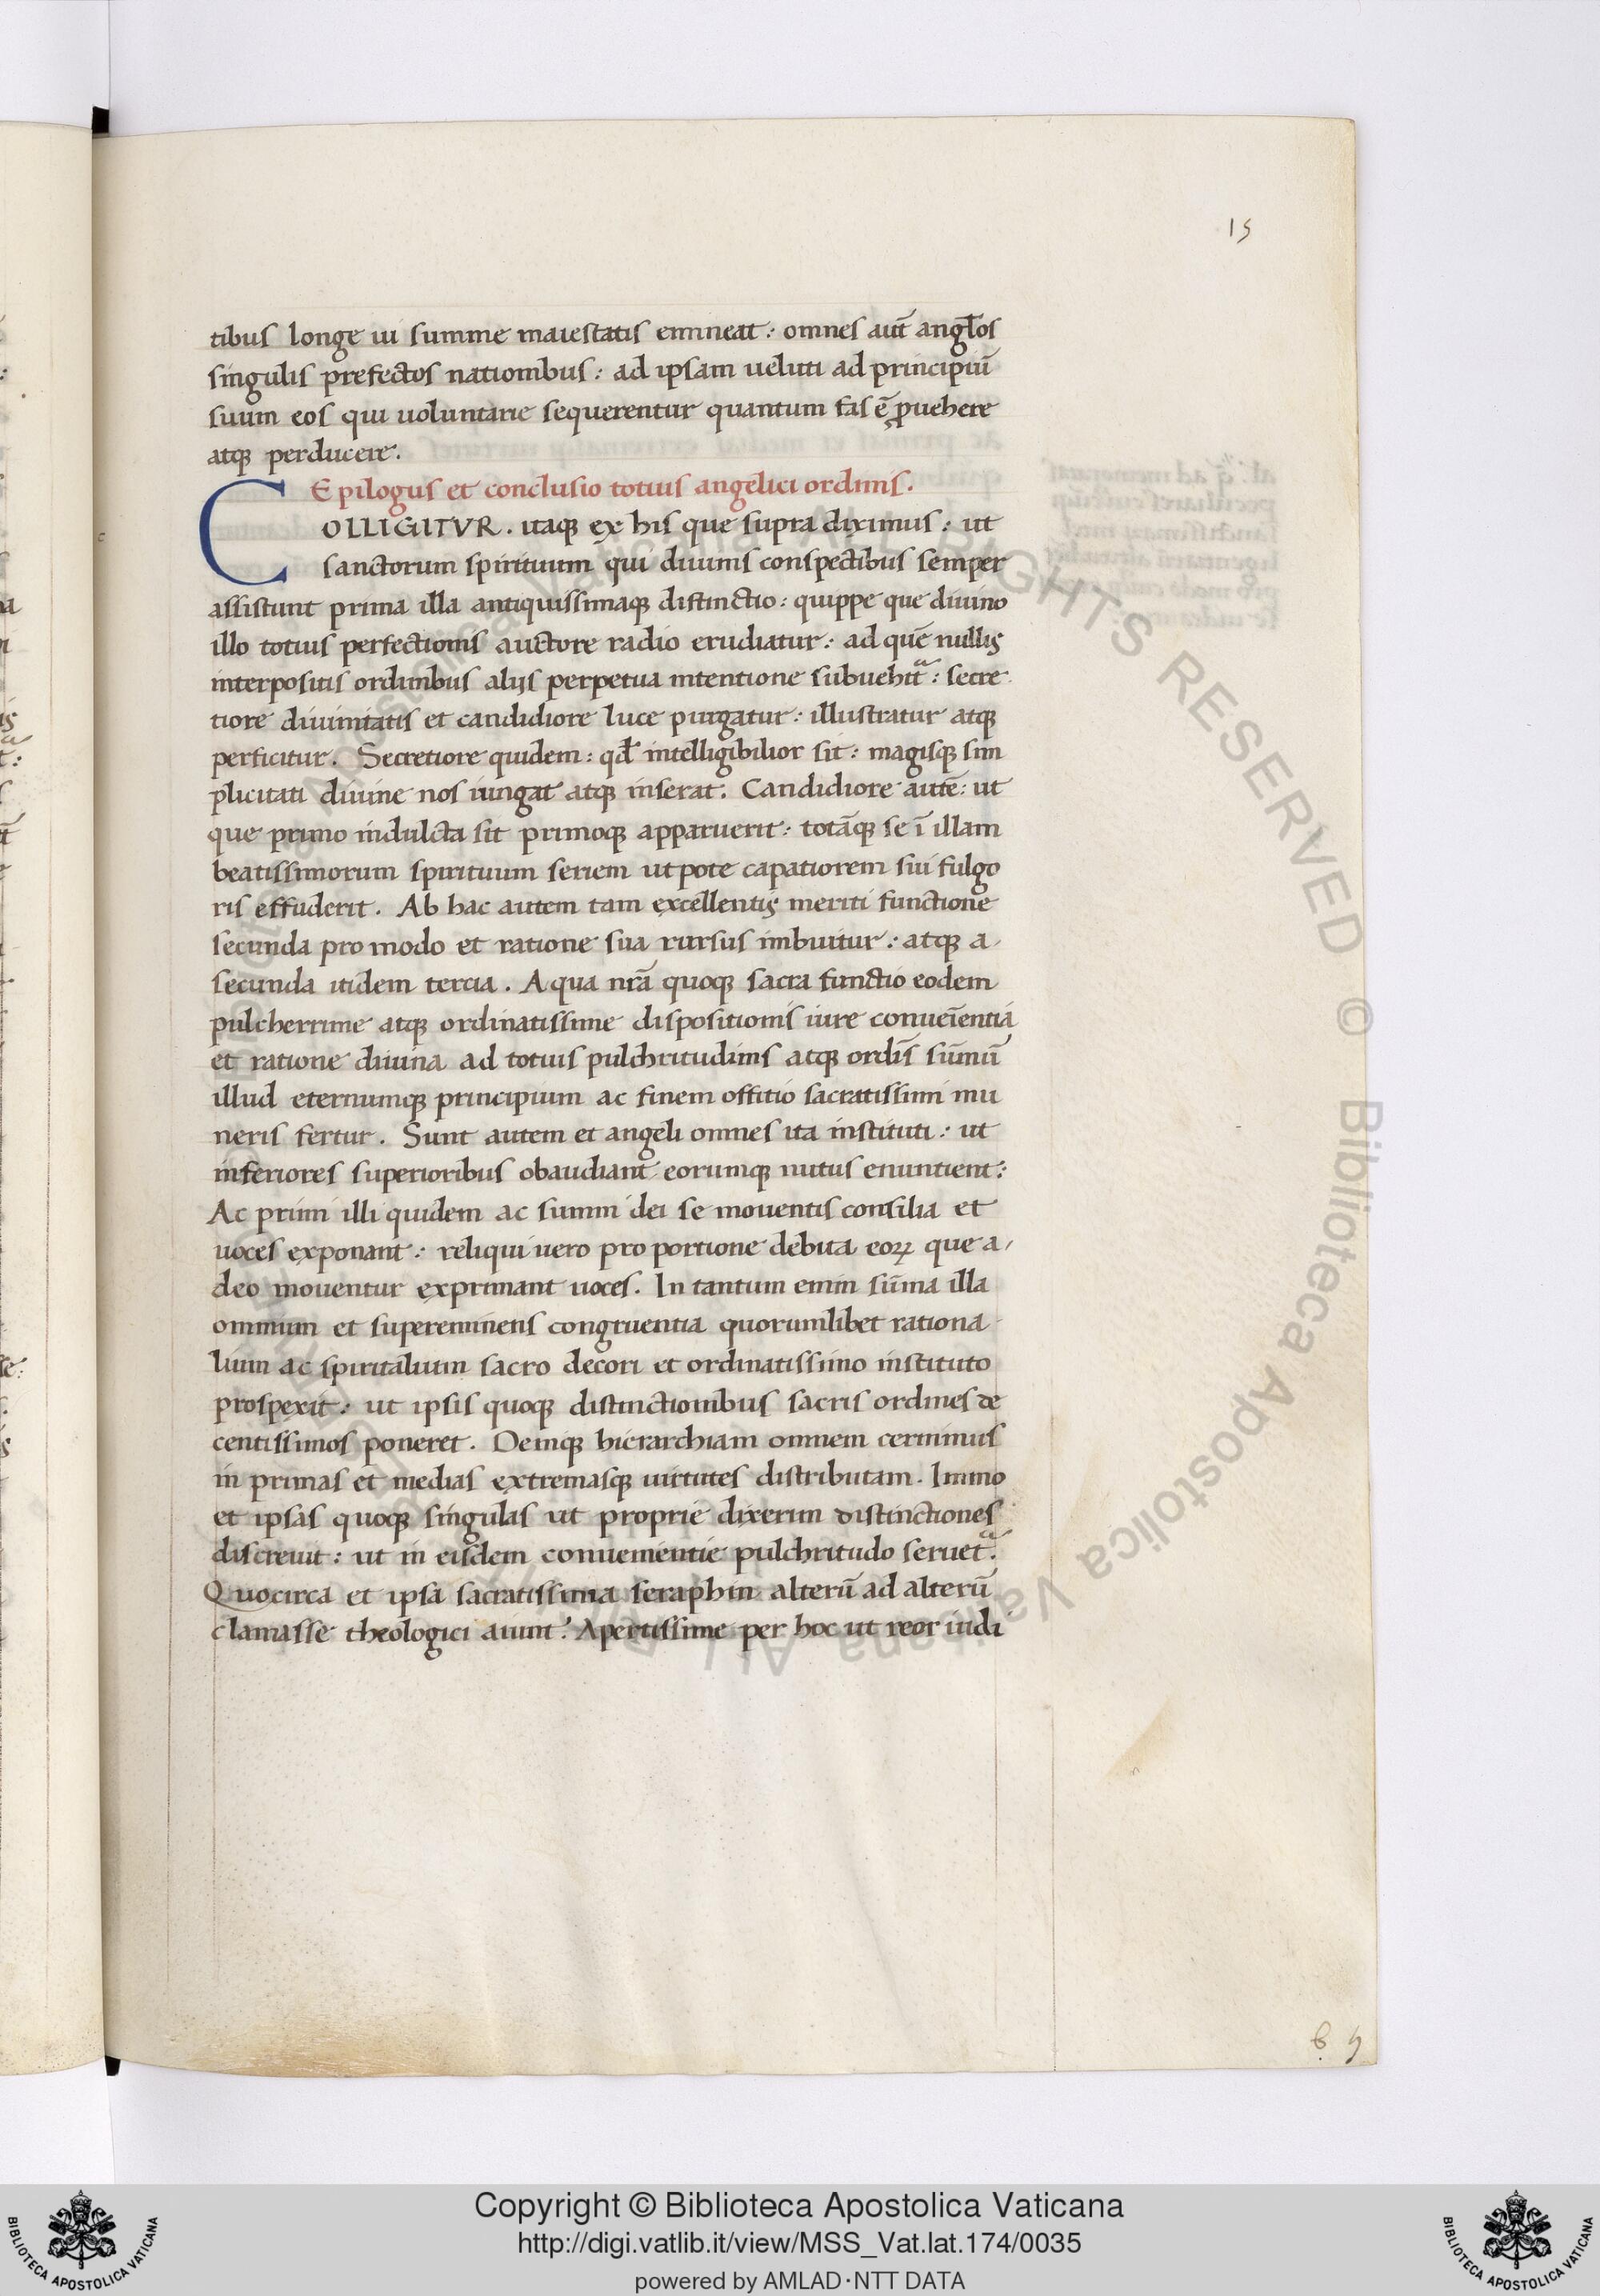 15
tibus longe ui summe maiestatis emineat: omnes aut̄ angl̄os
singulis prefectos nationibus: ad ipsam ueluti ad principiū
suum eos qui uoluntarie sequerentur quantum fas ē ꝓuehere
atqꝫ perducere.
Epilogus et conclusio totius angelici ordinis.
COLLIGITVR. itaqꝫ ex his que supra diximus: ut
sanctorum spirituum qui diuinis conspectibus semper
assistunt prima illa antiquissimaqꝫ distinctio: quippe que diuino
illo totius perfectionis auctore radio erudiatur: ad quē nullis
interpositis ordinibus alijs perpetua intentione subuehitᵃ: secre
tiore diuinitatis et candidiore luce purgatur: illustratur atqꝫ
perficitur. Secretiore quidem: qđ intelligibilior sit: magisqꝫ sim
plicitati diuine nos iungat atqꝫ inserat. Candidiore autē: ut
que primo indulcta sit primoqꝫ apparuerit: totāqꝫ se ī illam
beatissimorum spirituum seriem utpote capatiorem sui fulgo
ris effuderit. Ab hac autem tam excellentis meriti functione
secunda pro modo et ratione sua rursus imbuitur: atqꝫ a
secunda itidem tercia. A qua nrā quoqꝫ sacra functio eodem
pulcherrime atqꝫ ordinatissime dispositionis iure conueīentia
et ratione diuina ad totius pulchritudinis atqꝫ ordīs sūmū
illud eternumqꝫ principium ac finem offitio sacratissimi mu
neris fertur. Sunt autem et angeli omnes ita instituti: ut
inferiores superioribus obaudiant eorumqꝫ nutus enuntient:
Ac primi illi quidem ac summi dei se mouentis consilia et
uoces exponant: reliqui uero pro portione debita eoꝝ que a
deo mouentur exprimant uoces. In tantum enim sūma illa
omnium et supereminens congruentia quorumlibet rationa
lium ac spiritalium sacro decori et ordinatissimo instituto
prospexit: ut ipsis quoqꝫ distinctionibus sacris ordines de
centissimos poneret. Deniqꝫ hierarchiam omnem cernimus
in primas et medias extremasqꝫ uirtutes distributam. Immo
et ipsas quoqꝫ singulas ut proprie dixerim distinctiones
discreuit: ut in eisdem conuenientie pulchritudo seruetᵃ.
Quocirca et ipsa sacratissima seraphin alterū ad alterū
clamasse theologici aiunt: Apertissime per hoc ut reor iudi
Copyright © Biblioteca Apostolica Vaticana
http://digi.vatlib.it/view/MSS_Vat.lat.174/0035
powered by AMLAD·NTT DATA
BIBLIOTECA APOSTOLICA VATICANA
BIBLIOTECA APOSTOLICA VATICANA